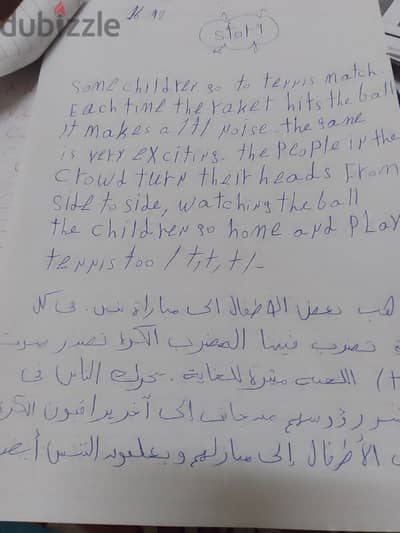 dubizzle
story
Some children go to tennis match.
Each time the raket hits the ball
it makes a /t/ noise. the game
is very exciting. the people in the
crowd turn their heads from
side to side, watching the ball
the children go home and play
tennis too / t, t, t /-
هب بعض الأطفال الى مباراة تنس. في كل
ة تضرب فيها المضرب الكرة تصدر صوت
اللعبه مثيرة للغاية. يحرك الناس في
رؤوسهم من جانب إلى آخر يراقبون الكرة
الأطفال إلى منازلهم و يلعبون التنس أيض